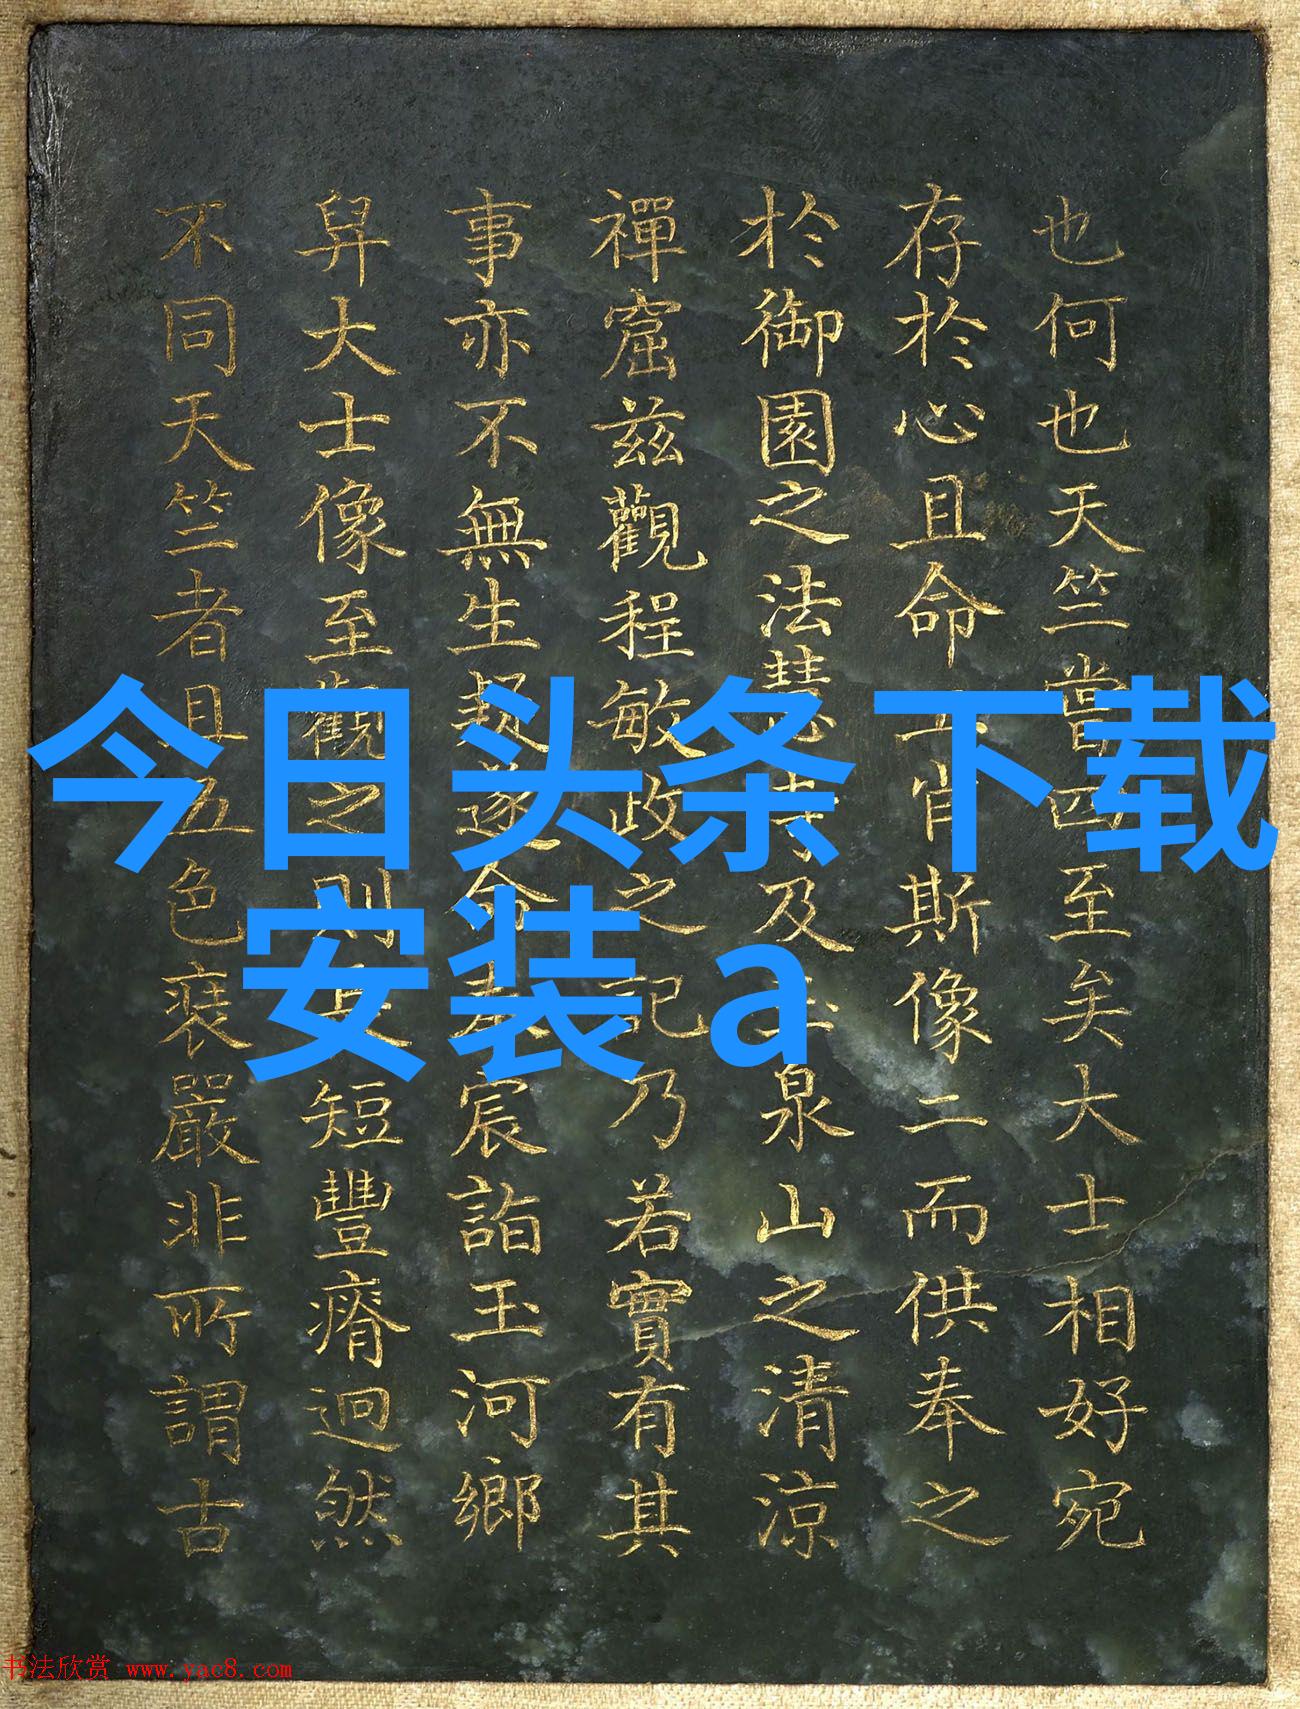 也何也天竺至矣大士相好宛
存於心且命肖斯像二而供奉之
於御園之法慧寺及玉泉山之清涼
禪窟兹觀程敏政之記乃若實有其
事亦不無生疑遂命奉宸詣玉河鄉
舁大士像至觀之則長短豐瘠迥然
不同天竺者且五色嚴非所謂古
今日头条下载
安装 a
书法欣赏 www.yac8.com